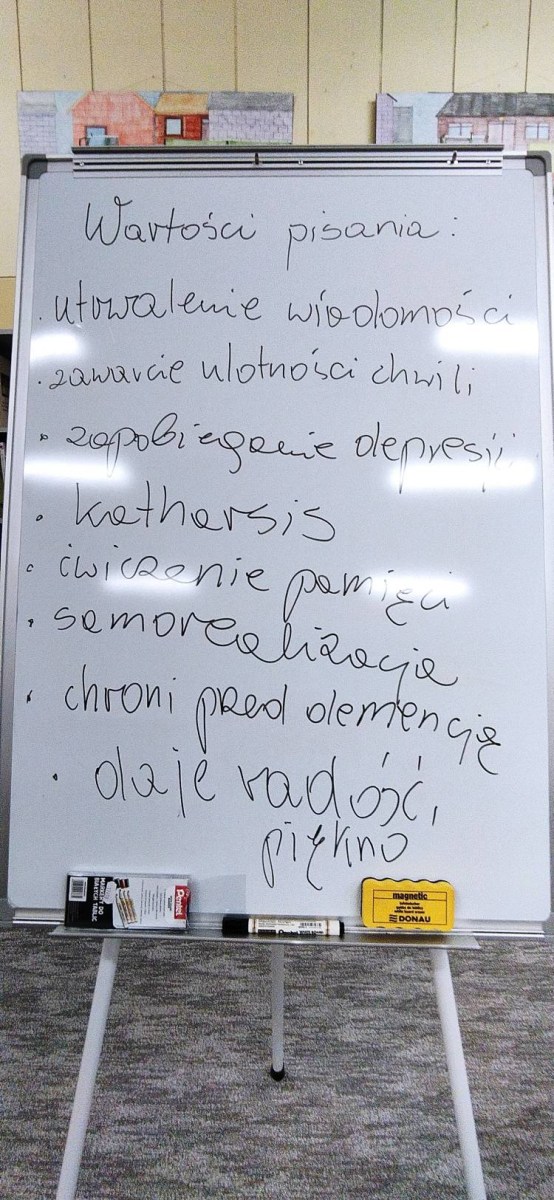 Wartości pisania:
• utrwalenie wiadomości
• zawarcie ulotności chwili
• zapobieganie depresji
• katharsis
• ćwiczenie pamięci
• samorealizacja
• chroni przed demencją
• daje radość,
piękno
MARKERY DO
BIAŁYCH TABLIC
Pentel
magnetic
DONAU